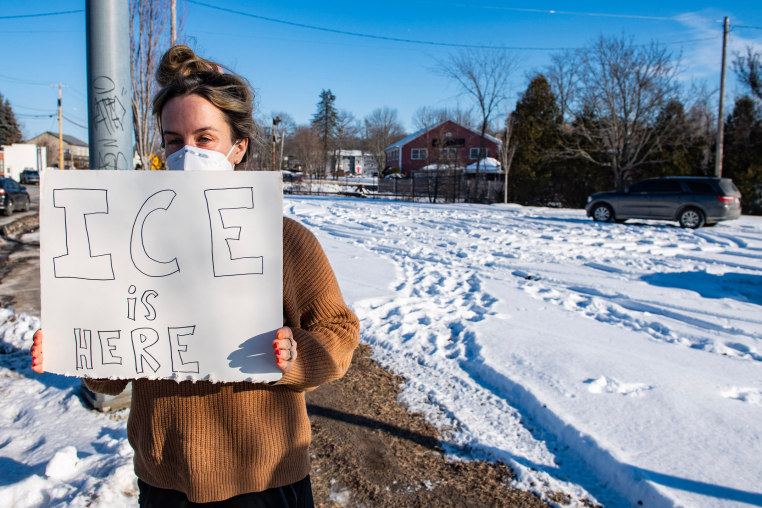 ICE
is
HERE